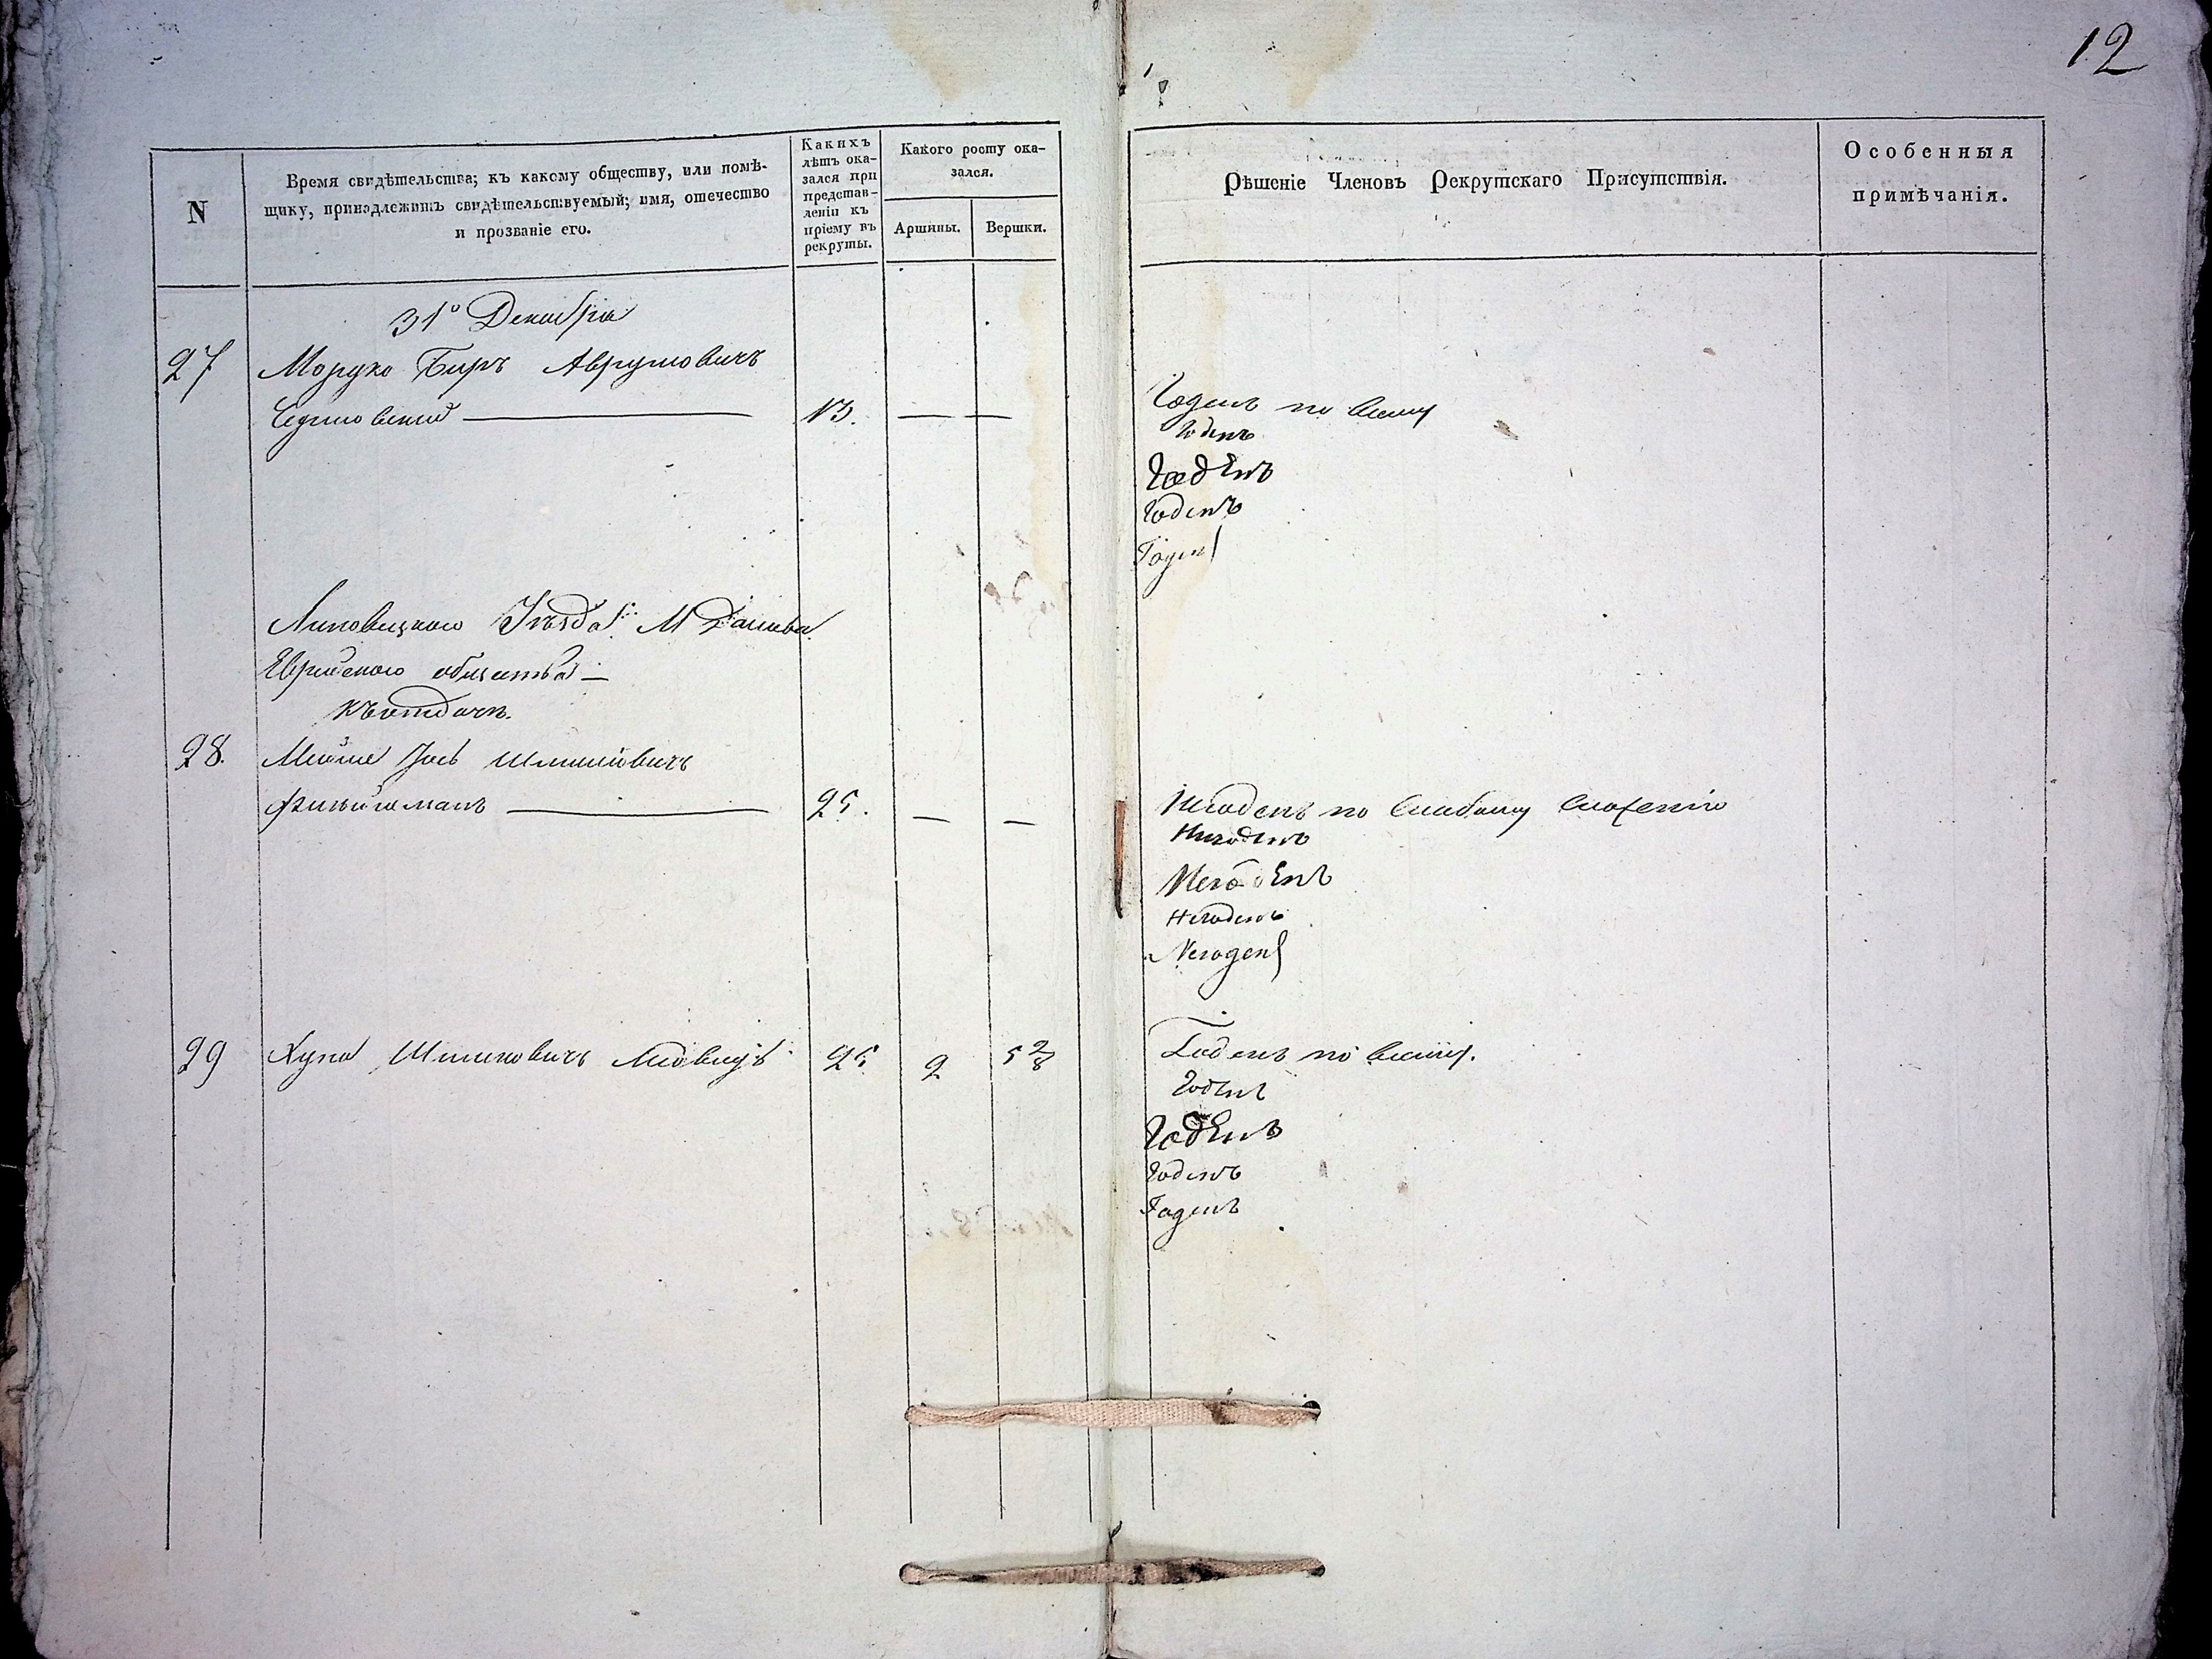 12
N
Время свидѣтельства; къ какому обществу, или помѣ-
щику, принадлежитъ свидѣтельствуемый; имя, отечество
и прозваніе его.
Какихъ
лѣтъ ока-
зался при
представ-
леніи къ
пріему въ
рекруты.
Какого росту ока-
зался.
Аршины.
Вершки.
Рѣшеніе Членовъ Рекрутскаго Присутствія.
Особенныя
примѣчанія.
31го Декабря
27 Беръ Аврумовичъ
13. — —
Годенъ по всему
Годенъ
Годенъ
Годенъ
Годенъ
Липовецкого Уѣзда М Дашова
Еврейского общества —
Къ отдачѣ.
28. Мошко Іось Шлиомовичъ
25. — —
Негоденъ по слабому сложенію
Негоденъ
Негоденъ
Негоденъ
Негоденъ
29 Хуна 25 2 5 2/8
Годенъ по всему.
Годенъ
Годенъ
Годенъ
Годенъ